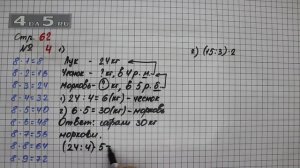 4DA5.RU
Стр. 62
№ 4 1)
2) (15:3)·2
8·1=8
8·2=16
8·3=24
8·4=32
8·5=40
8·6=48
8·7=56
8·8=64
8·9=72
Лук - 24 кг
Чеснок - ? кг, в 4 р. м.
Морковь - ? кг, в 5 р. б.
1) 24:4=6(кг)-чеснок
2) 6·5=30(кг)-морковь
Ответ: собрали 30 кг
моркови.
(24:4)·5=